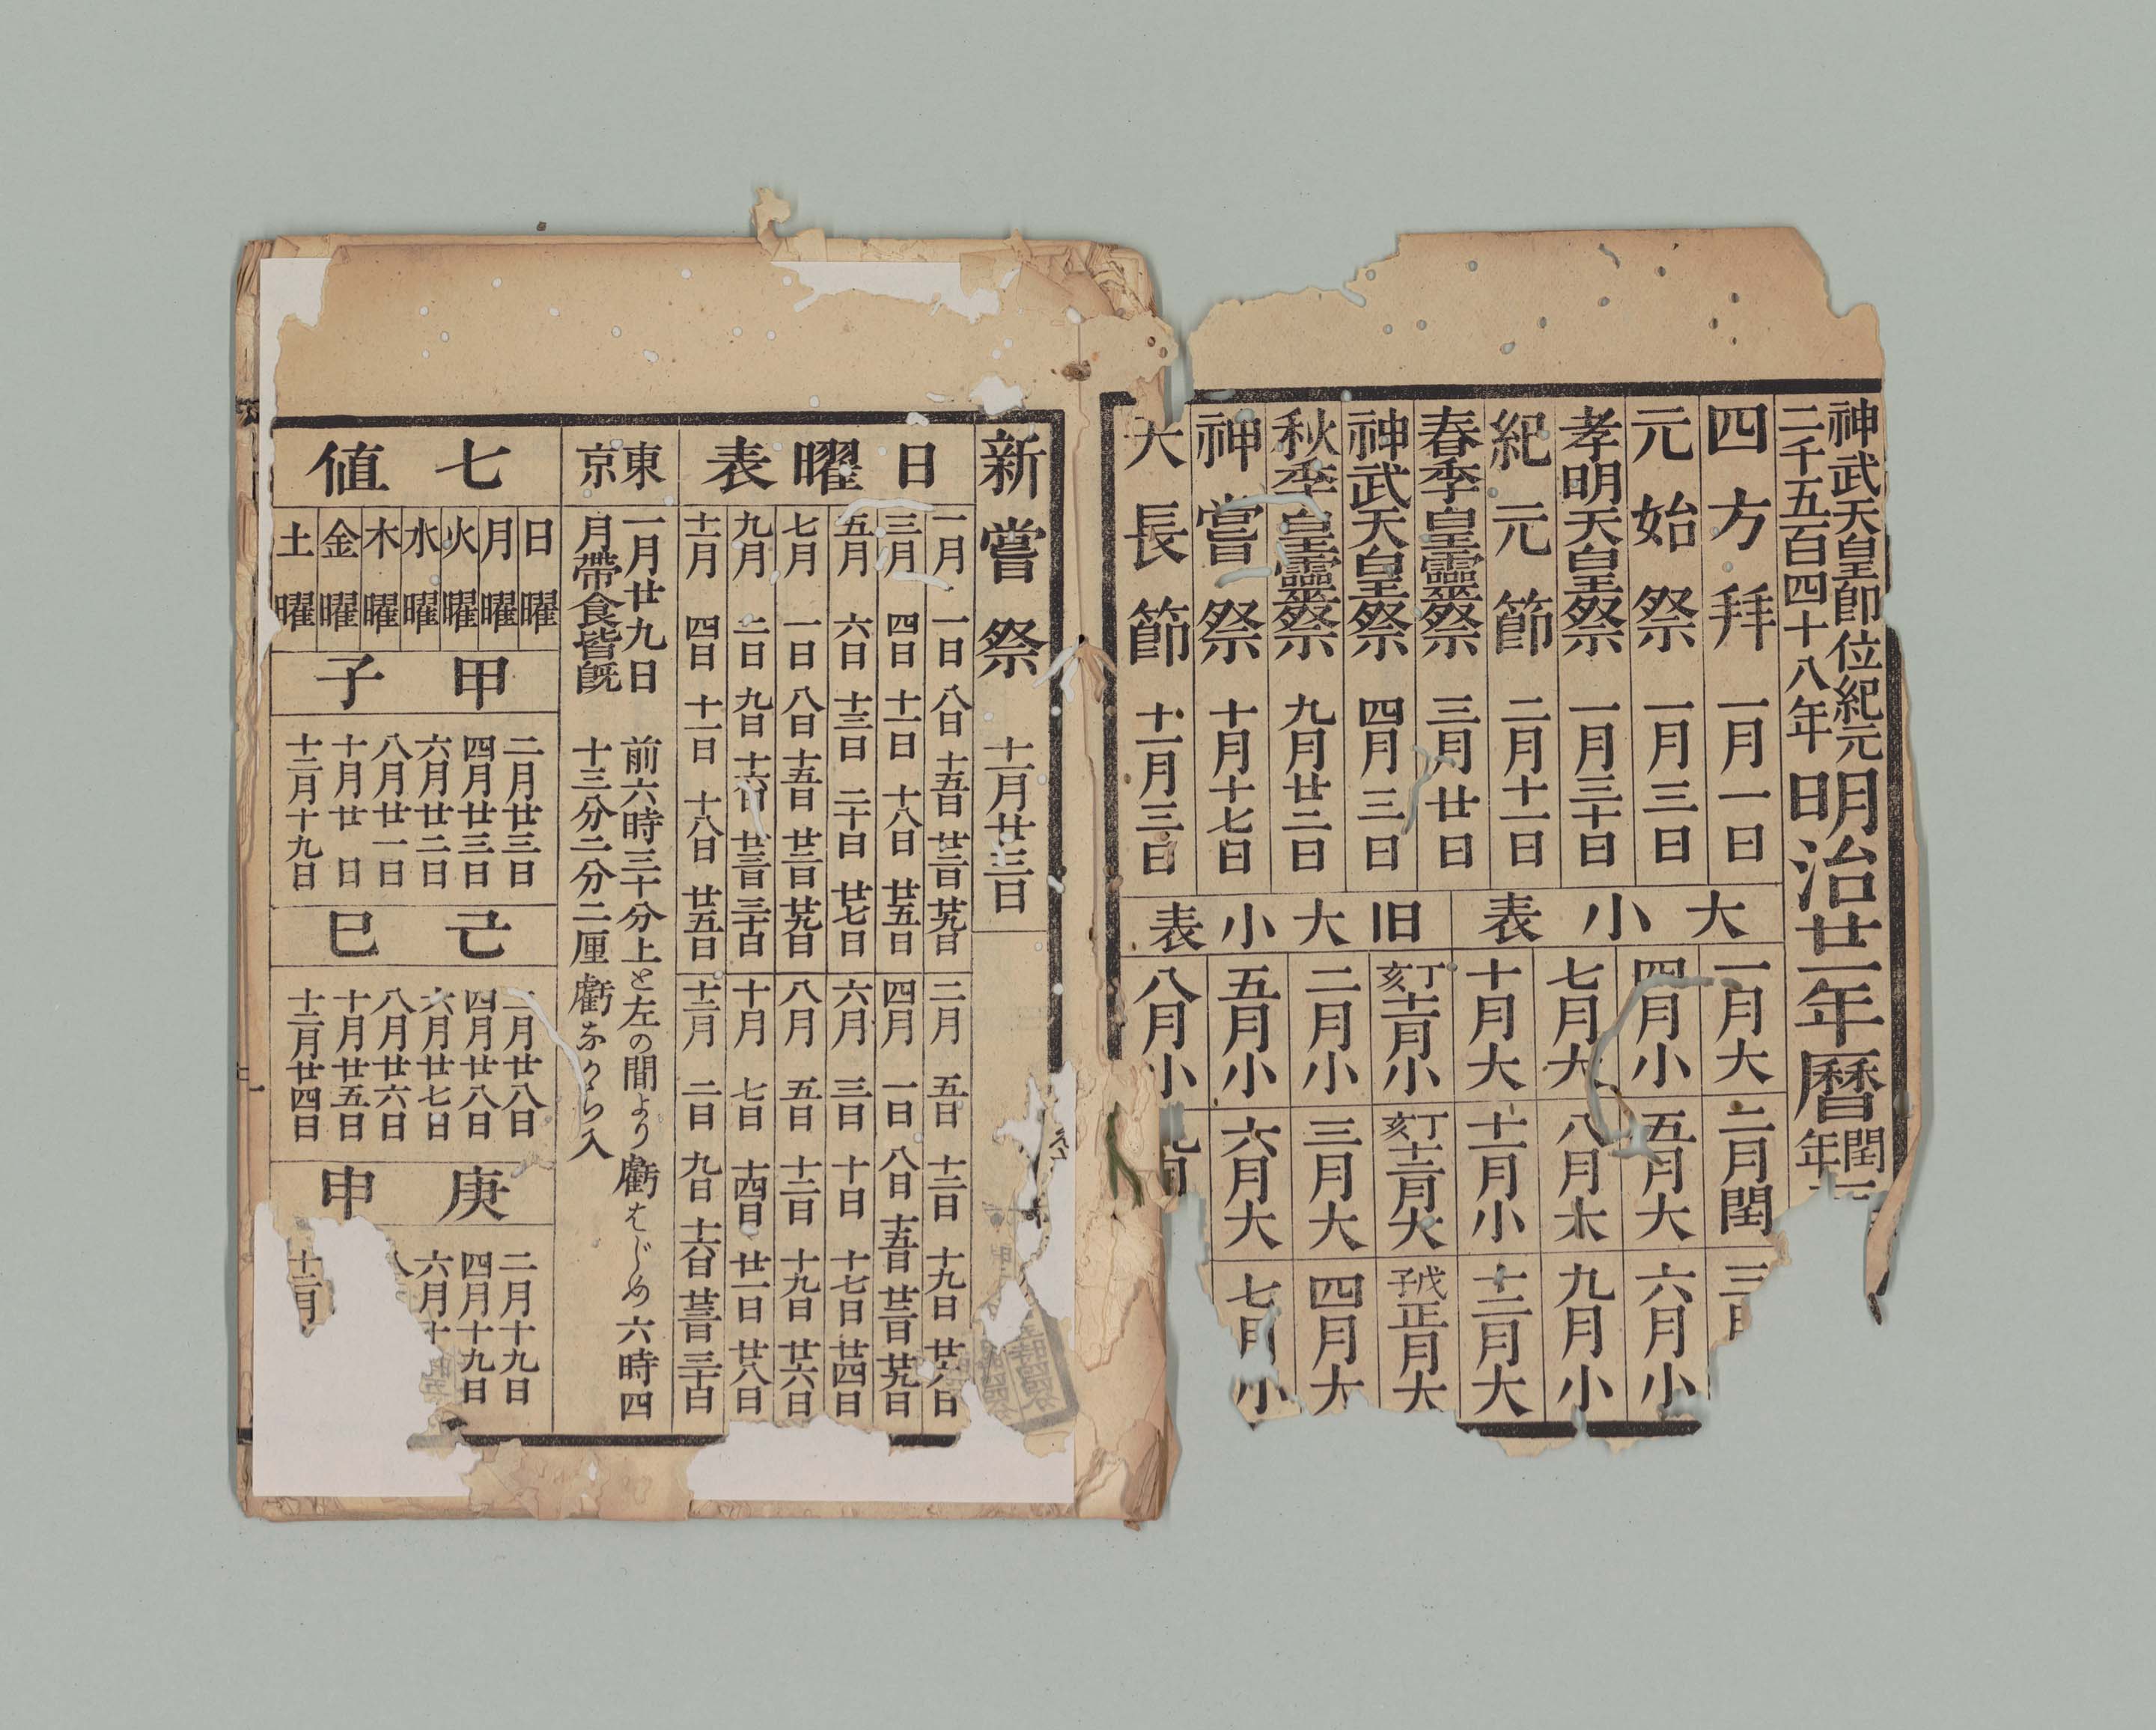 神武天皇即位紀元
二千五百四十八年
明治廿一年暦
閏年
四方拜 一月一日
元始祭 一月三日
孝明天皇祭 一月三十日
紀元節 二月十一日
春季皇靈祭 三月廿日
神武天皇祭 四月三日
秋季皇靈祭 九月廿二日
神嘗祭 十月十七日
天長節 十一月三日
大小表
一月大 二月閏 三月
四月小 五月大 六月小
七月大 八月大 九月小
十月大 十一月小 十二月大
旧大小表
丁亥十一月小 丁亥十二月大 戊子正月大
二月小 三月大 四月大
五月小 六月大 七月小
八月小 九月
新嘗祭 十一月廿三日
日曜表
一月 一日 八日 十五日 廿二日 廿九日 二月 五日 十二日 十九日 廿六日
三月 四日 十一日 十八日 廿五日 四月 一日 八日 十五日 廿二日 廿九日
五月 六日 十三日 二十日 廿七日 六月 三日 十日 十七日 廿四日
七月 一日 八日 十五日 廿二日 廿九日 八月 五日 十二日 十九日 廿六日
九月 二日 九日 十六日 廿三日 三十日 十月 七日 十四日 廿一日 廿八日
十一月 四日 十一日 十八日 廿五日 十二月 二日 九日 十六日 廿三日 三十日
東京
一月廿九日
月帶食皆既
前六時三十分上と左の間より虧はじめ六時四
十三分二分二厘虧ながら入
七値
日曜
月曜
火曜
水曜
木曜
金曜
土曜
甲子
二月廿三日
四月廿三日
六月廿二日
八月廿一日
十月廿日
十二月十九日
己巳
二月廿八日
四月廿八日
六月廿七日
八月廿六日
十月廿五日
十二月廿四日
庚申
二月十九日
四月十九日
六月十
八
十二月